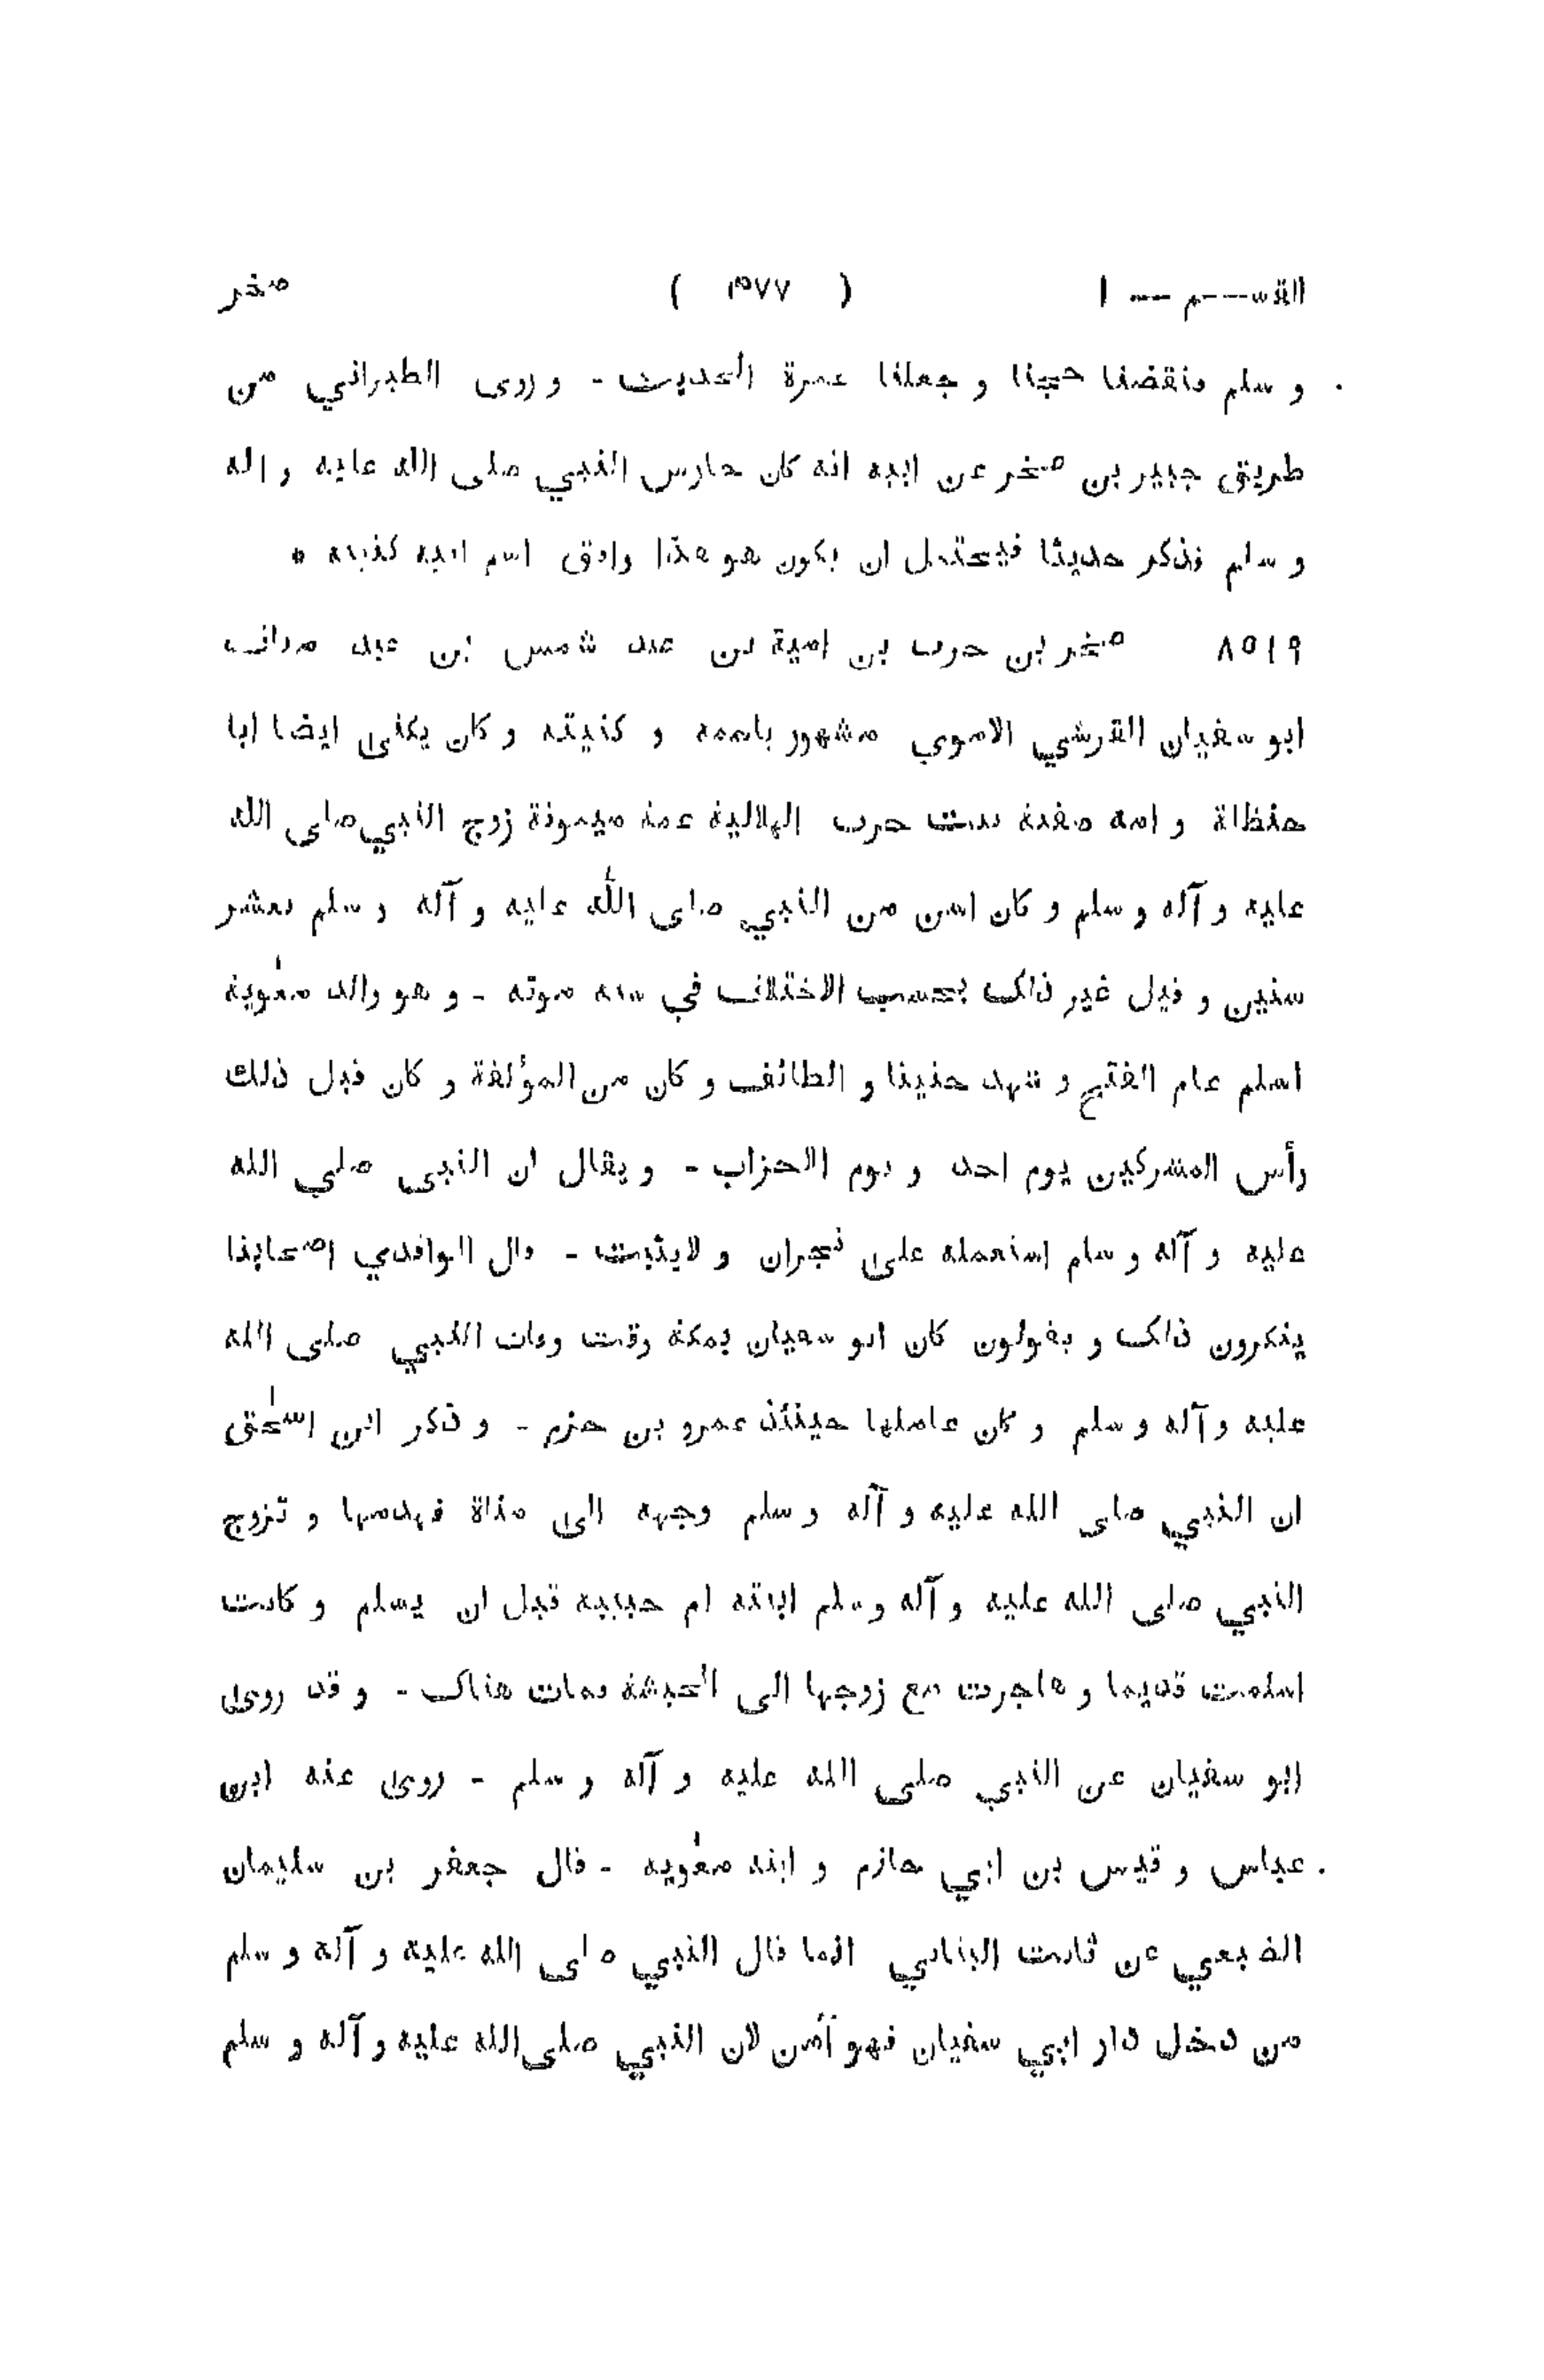 القسم — ١ ( ٤٧٧ ) صخر
و سلم فنقضنا حجنا و جعلنا عمرة الحديث - و روى الطبراني من
طريق جبير بن صخر عن ابيه انه كان حارس النبي صلى الله عليه و اله
و سلم فذكر حديثا فيحتمل ان يكون هو هذا وافق اسم ابيه كنيته *
٨٥١٩ صخر بن حرب بن امية بن عبد شمس بن عبد مناف
ابو سفيان القرشي الاموي مشهور باسمه و كنيته و كان يكنى ايضا ابا
حنظلة و امه صفية بنت حرب الهلالية عمة ميمونة زوج النبي صلى الله
عليه و آله و سلم و كان اسن من النبي صلى الله عليه و آله و سلم بعشر
سنين و قيل غير ذلك بحسب الاختلاف في سنة موته - و هو والد معٰوية
اسلم عام الفتح و شهد حنينا و الطائف و كان من المؤلفة و كان قبل ذلك
رأس المشركين يوم احد و يوم الاحزاب - و يقال ان النبي صلي الله
عليه و آله و سلم استعمله على نجران و لايثبت - قال الواقدي اصحابنا
ينكرون ذلك و يقولون كان ابو سفيان بمكة وقت وفات النبي صلى الله
عليه و آله و سلم و كان عاملها حينئذ عمرو بن حزم - و ذكر ابن اسحٰق
ان النبي صلى الله عليه و آله و سلم وجهه الى مناة فهدمها و تزوج
النبي صلى الله عليه و آله و سلم ابنته ام حبيبة قبل ان يسلم و كانت
اسلمت قديما و هاجرت مع زوجها الى الحبشة فمات هناك - و قد روى
ابو سفيان عن النبي صلى الله عليه و آله و سلم - روى عنه ابن
عباس و قيس بن ابي حازم و ابنه معٰوية - قال جعفر بن سليمان
الضبعي عن ثابت البناني انما قال النبي صلى الله عليه و آله و سلم
من دخل دار ابي سفيان فهو آمن لان النبي صلى الله عليه و آله و سلم